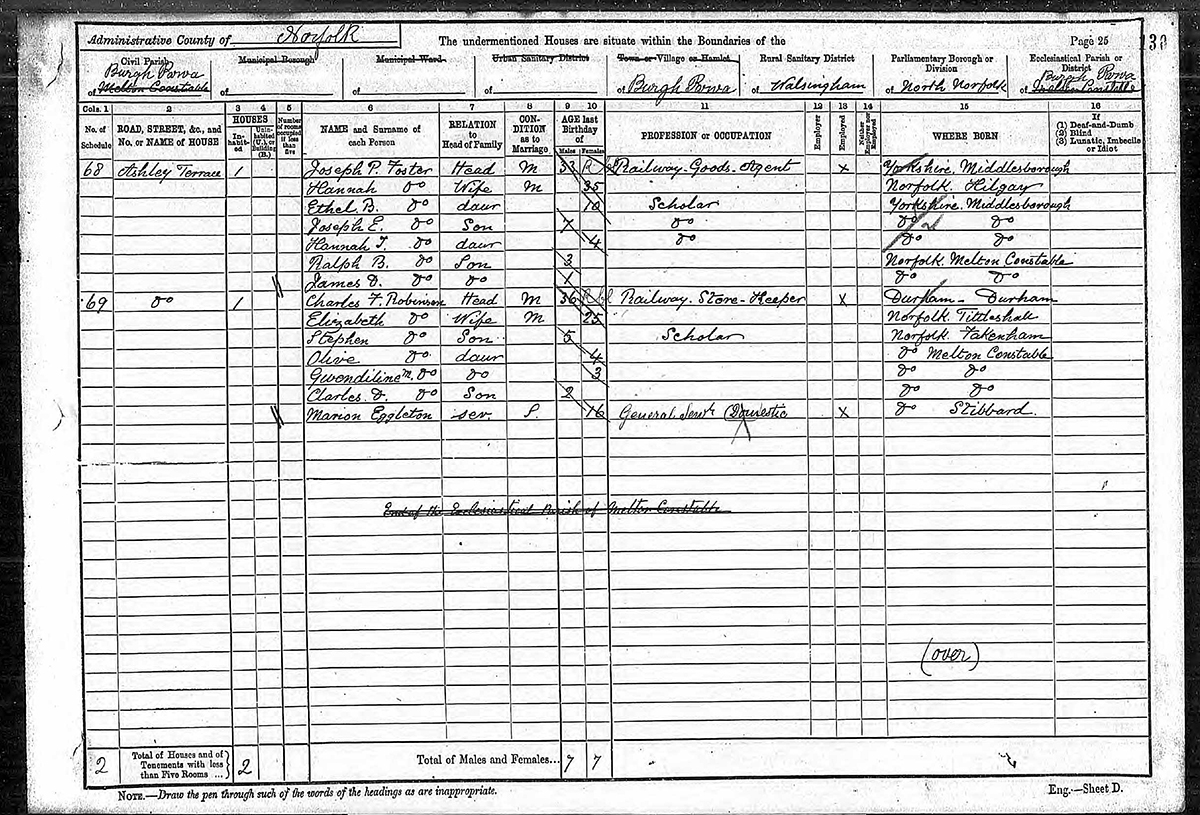 Administrative County of Norfolk
The undermentioned Houses are situate within the Boundaries of the
Page 25
Civil Parish
of Melton Constable
Burgh Parva
Municipal Borough
of
Municipal Ward
of
Urban Sanitary District
of
Town or Village or Hamlet
of Burgh Parva
Rural Sanitary District
of Walsingham
Parliamentary Borough or Division
of North Norfolk
Ecclesiastical Parish or District
Burgh Parva
of Melton Constable
Cols. 1 2 3 4 5 6 7 8 9 10 11 12 13 14 15 16
No. of Schedule
ROAD, STREET, &c., and No. or NAME of HOUSE
HOUSES
In-habit-ed
Unin-habited (U.), or Building (B.)
Number of rooms occupied if less than five
NAME and Surname of each Person
RELATION to Head of Family
CON-DITION as to Marriage
AGE last Birthday of
Males Females
PROFESSION or OCCUPATION
Employer
Employed
Neither Employer nor Employed
WHERE BORN
If
(1) Deaf-and-Dumb
(2) Blind
(3) Lunatic, Imbecile or Idiot
68 Ashley Terrace 1 Joseph P. Foster Head M 33 Railway Goods Agent x Yorkshire, Middlesborough
Hannah Do Wife M 35 Norfolk. Hilgay
Ethel B. Do daur 10 Scholar Yorkshire. Middlesborough
Joseph E. Do Son 7 Do Do Do
Hannah T. Do daur 4 Do Do Do
Ralph B. Do Son 3 Norfolk. Melton Constable
James D. Do Do 1 Do Do
69 Do 1 Charles F. Robinson Head M 36 Railway. Store-Keeper x Durham - Durham
Elizabeth Do Wife M 25 Norfolk. Tittleshall
Stephen Do Son 5 Scholar Norfolk. Fakenham
Olive Do daur 4 Do Melton Constable
Gwendiline M. Do Do 3 Do Do
Charles D. Do Son 2 Do Do
Marion Eggleton ser. S. 16 General Servt (Domestic x Do Stibbard.
End of the Ecclesiastical Parish of Melton Constable
(over)
2 Total of Houses and of Tenements with less than Five Rooms ... 2
Total of Males and Females... 7 7
NOTE.—Draw the pen through such of the words of the headings as are inappropriate.
Eng.—Sheet D.